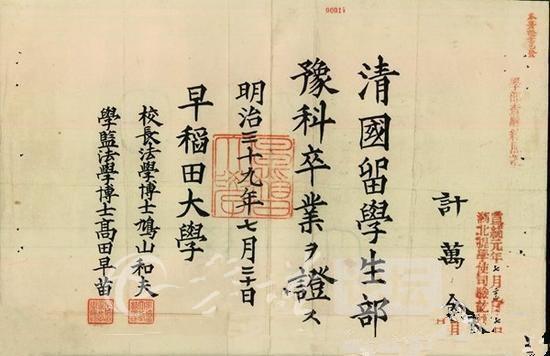 00014
計萬
清國留學生部
豫科卒業ヲ證ス
明治三十九年七月二十日
早稻田大學
校長法學博士鳩山和夫
學監法學博士髙田早苗
宣統元年七月
湖北提學使司驗訖